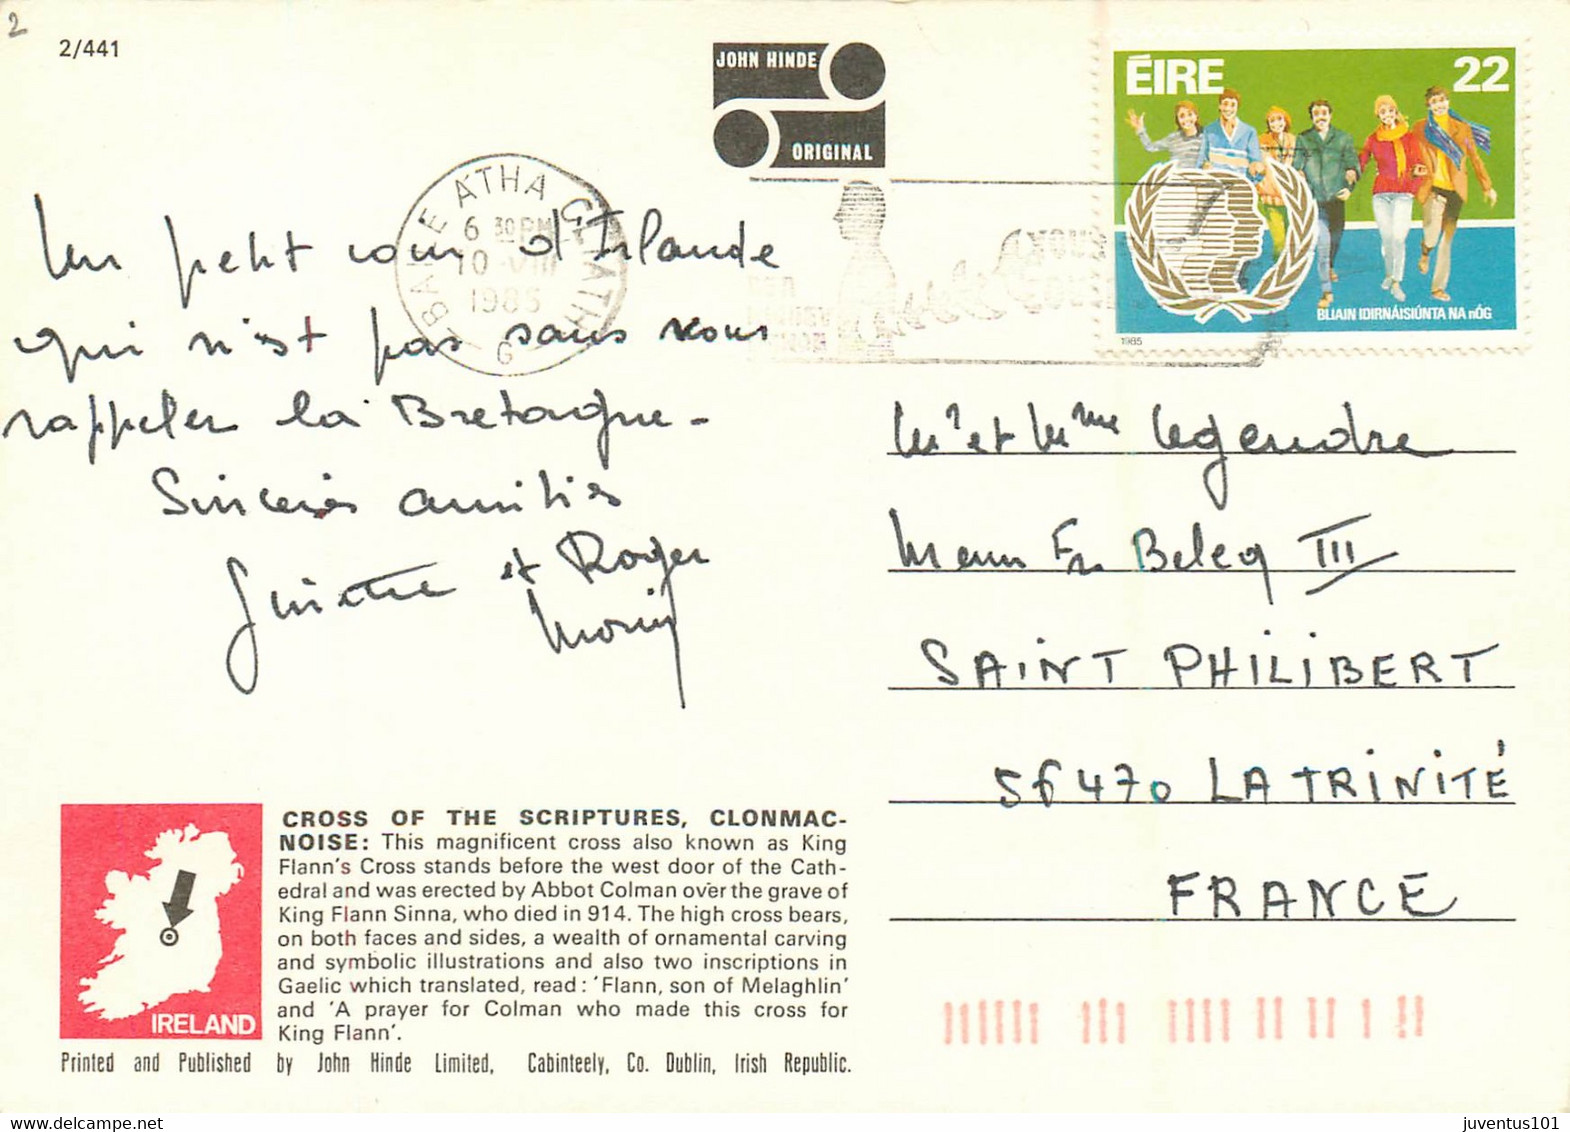 2
2/441
JOHN HINDE
ORIGINAL
ÉIRE 22
BLIAIN IDIRNÁISIÚNTA NA nÓG
1985
BAILE ÁTHA CLIATH
6 30 PM
10 VIII
1985
G
Un petit coin d'Irlande
qui n'est pas sans nous
rappeler la Bretagne -
Sincères amitiés
Ginette et Roger
Morin
Mr et Mme Legendre
Mann Er Beleg III
SAINT PHILIBERT
56470 LA TRINITÉ
FRANCE
CROSS OF THE SCRIPTURES, CLONMAC-
NOISE: This magnificent cross also known as King
Flann's Cross stands before the west door of the Cath-
edral and was erected by Abbot Colman over the grave of
King Flann Sinna, who died in 914. The high cross bears,
on both faces and sides, a wealth of ornamental carving
and symbolic illustrations and also two inscriptions in
Gaelic which translated, read: 'Flann, son of Melaghlin'
and 'A prayer for Colman who made this cross for
King Flann'.
IRELAND
Printed and Published by John Hinde Limited, Cabinteely, Co. Dublin, Irish Republic.
juventus101